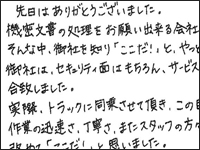 先日はありがとうございました。
機密文書の処理をお願い出来る会社
そんな中、御社を知り「ここだ!」と、やっと
御社は、セキュリティ面はもちろん、サービス
合致しました。
実際、トラックに同乗させて頂き、この目
作業の迅速さ、丁寧さ、またスタッフの方々
改めて「ここだ!」と思いました。